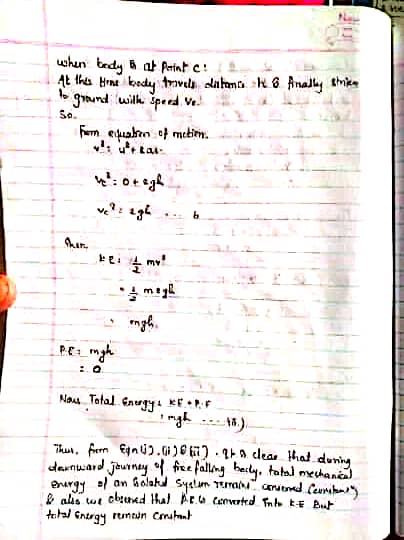 when body is at Point C:
At this time body travels distance 'h' & finally strikes
to ground with speed Vc.
So.
From equation of motion.
v² = u² + 2as.
Vc² = 0 + 2gh
Vc² = 2gh ... b
Then
KE = 1/2 mv²
= 1/2 m2gh
= mgh.
P.E = mgh
= 0
Now Total Energy = KE + P.E
= mgh .... (iii)
Thus, from Eqn (i), (ii) & (iii). It is clear that during
downward journey of free falling body, total mechanical
energy of an isolated system remains conserved (constant)
& also we observed that P.E is converted into K.E But
total Energy remain constant